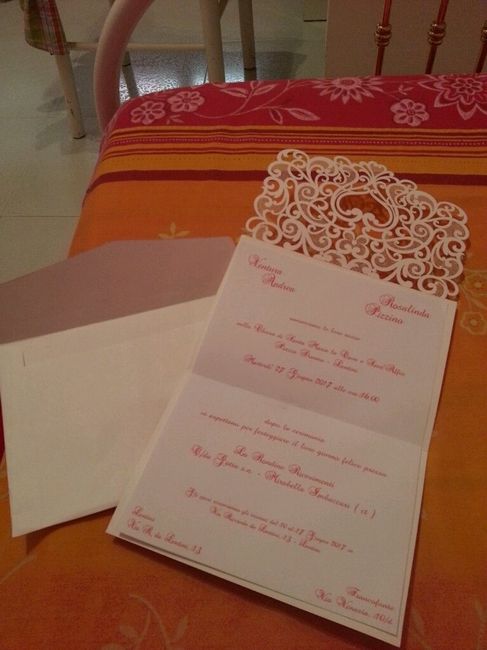 Ventura
Andrea
Rosalinda
Pizzino
annunciano le loro nozze
nella Chiesa di Santa Maria La Cava e Sant'Alfio
Piazza Duomo - Lentini
Martedì 27 Giugno 2017 alle ore 16:00
dopo la cerimonia
vi aspettano per festeggiare il loro giorno felice presso
La Rondine Ricevimenti
C/da Gatta s.n. - Mirabella Imbaccari ( )
Gli sposi riceveranno gli auguri dal 20 al 27 Giugno 2017 in
Via da Lentini, 13 - Lentini
Lentini
Via da Lentini, 13
Francofonte
Via Venezia, 10/d